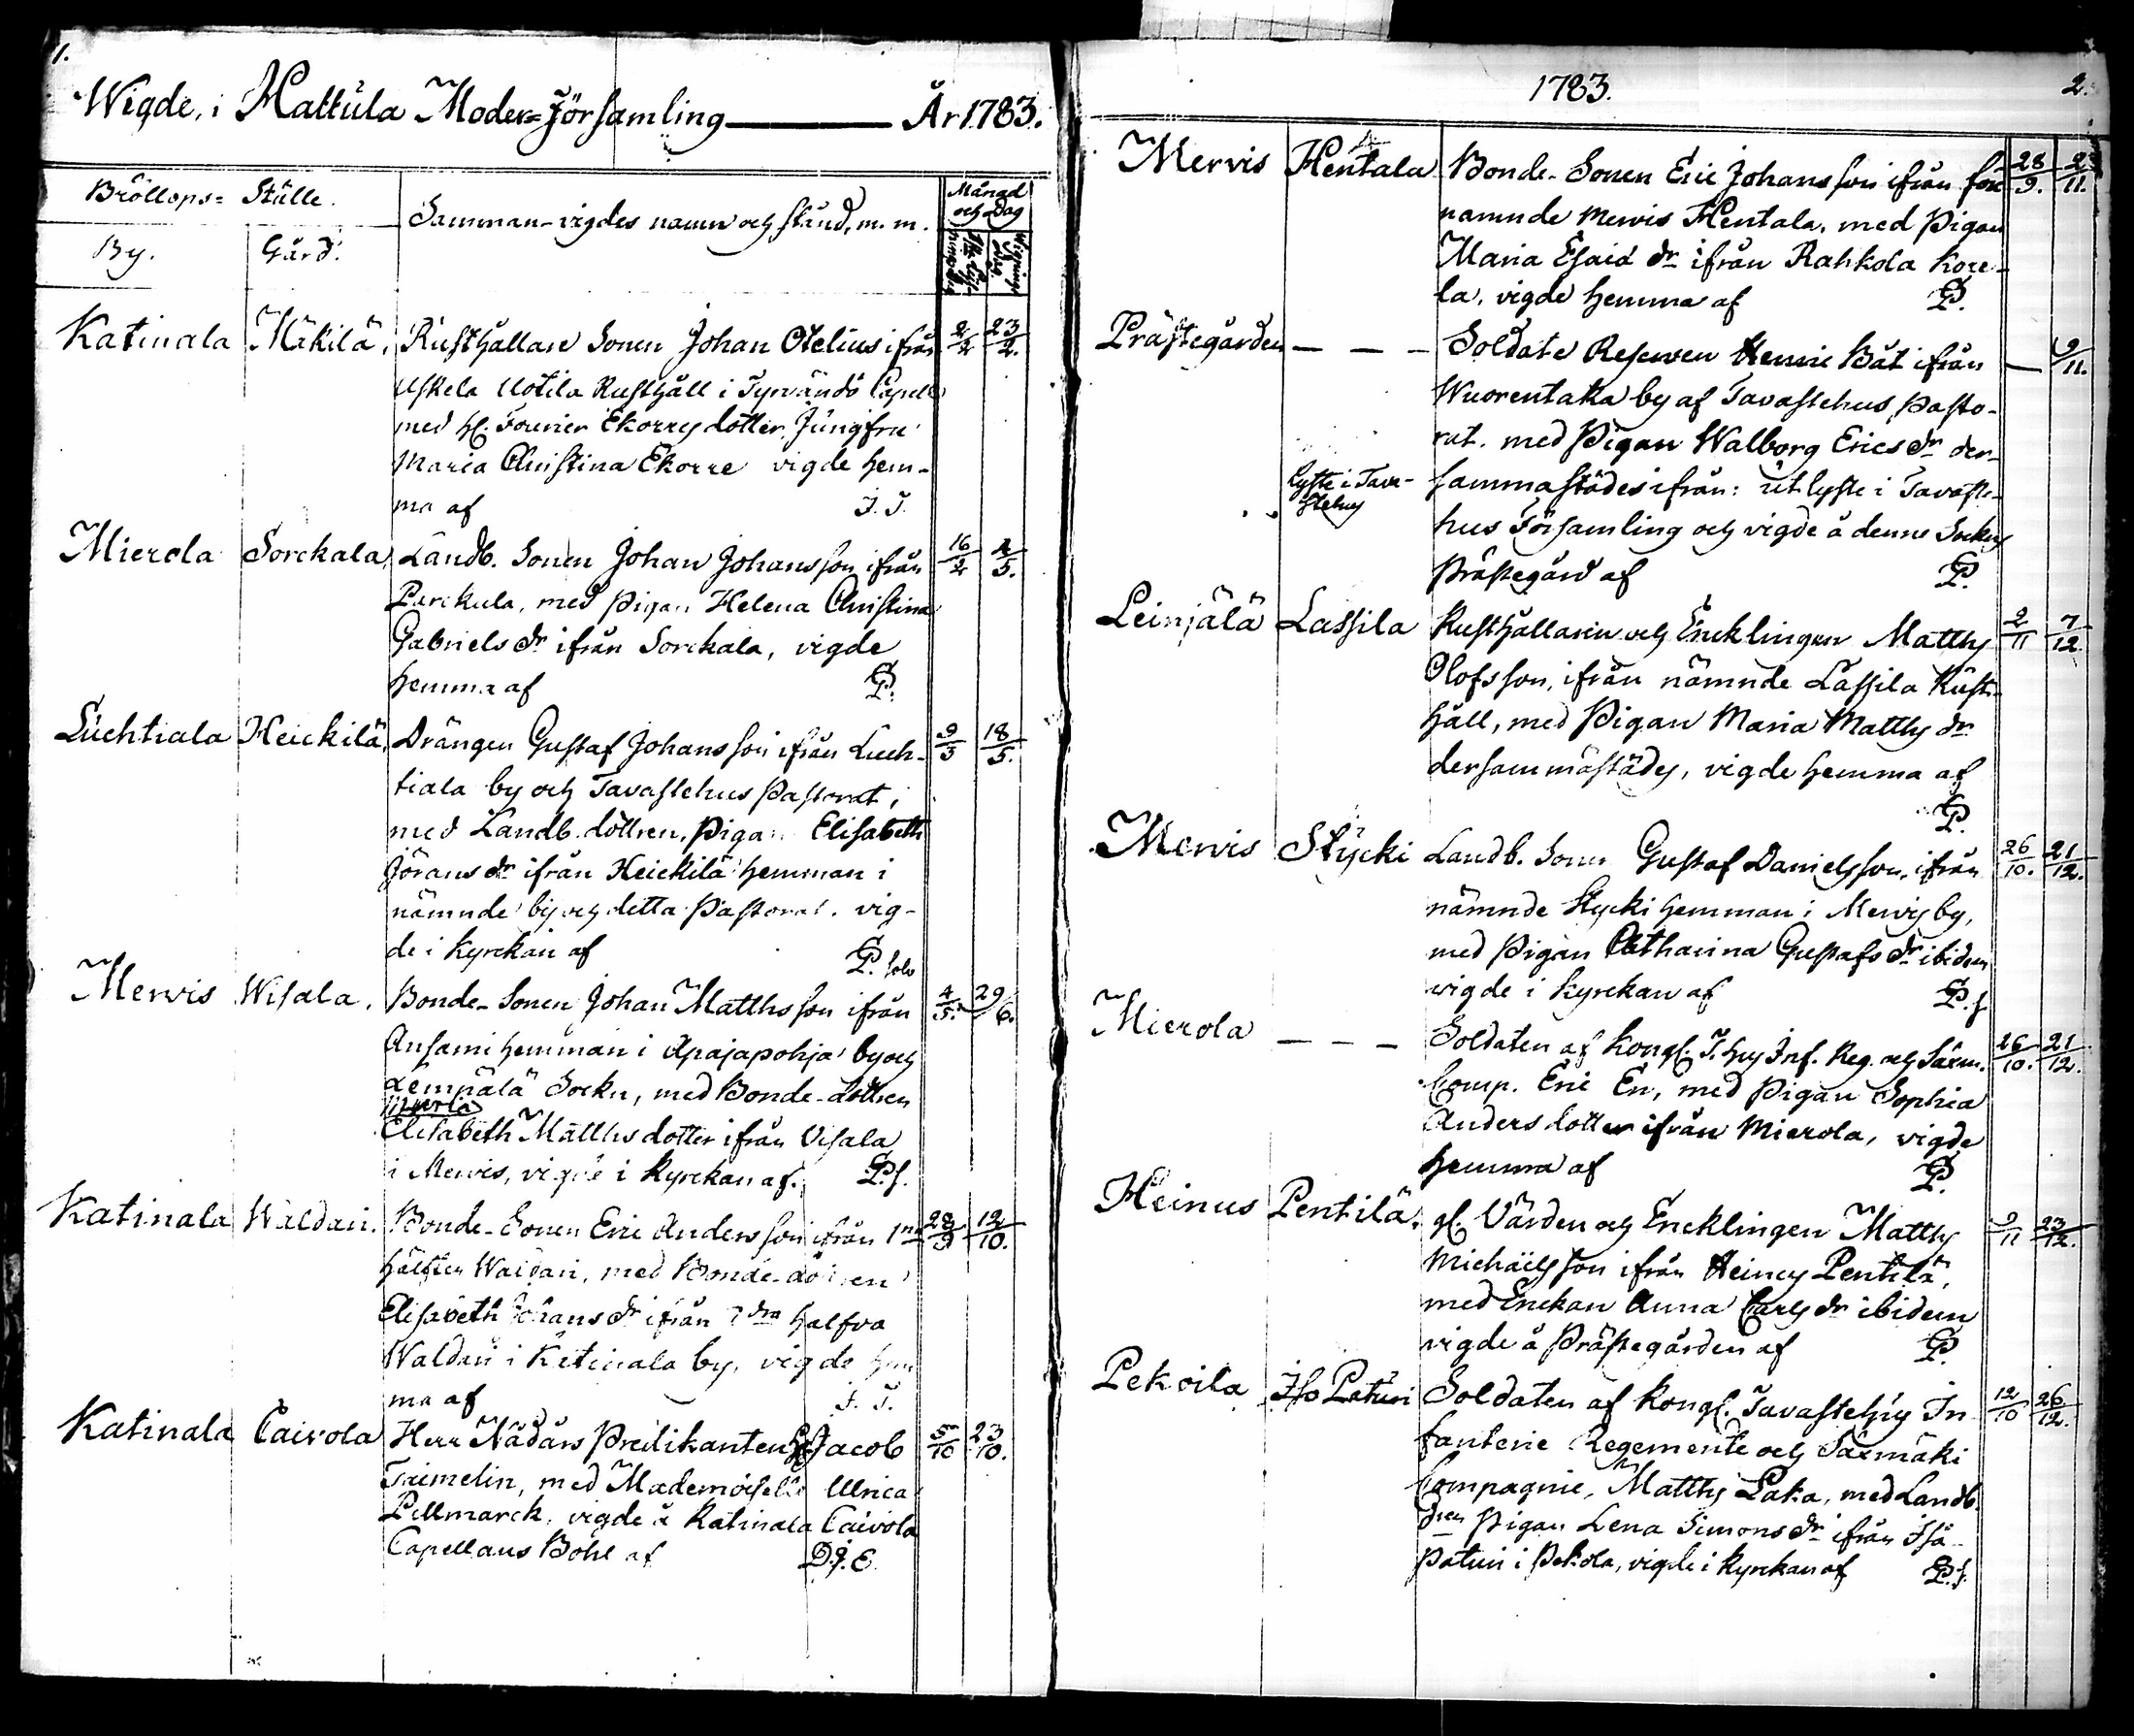 1.
Wigde, i Hattula Moder=Församling — År 1783.
Bröllops= Ställe.
Samman-vigdes namn och stånd, m. m.
Månad och Dag
By.
Gård.
Katinala Mäkilä, Rusthållare Sonen Johan Otelius ifrån 2/2 23/2.
Uskela Uotila Rusthåll i Tyrvändö Capell
med hl. Fourier Ekorres dotter, Jungfru
Maria Christina Ekorre vigde hem-
ma af J. T.
Mierola Sorckala, Landb. Sonen Johan Johansson ifrån 16/2 1/5.
Parckula, med Pigan Helena Christina
Gabriels dr ifrån Sorckala, vigde
hemma af P.
Luchtiala Heickilä, Drängen Gustaf Johansson ifrån Luch- 9/3 18/5.
tiala by och Tavastehus Pastorat,
med Landb. dottren, Pigan Elisabeth
Jörans dr ifrån Heickilä hemman i
nämnde by och detta Pastorat. vig-
de i Kyrckan af P. solo
Mervis Wisala. Bonde-Sonen Johan Matthsson ifrån 4/5. 29/6.
Ansami hemman i Apajapohja by och
Lempälä Sockn, med Bonde-dottren
Maria
Elisabeth Matths dotter ifrån Visala
i Mervis, vigde i Kyrckan af. P. s.
Katinala Waldari. Bonde-Sonen Eric Andersson ifrån 1na 28/9 12/10.
hälften Waldari, med Bonde-dottren
Elisabeth Johans dr ifrån 2dra halfva
Waldari i Katinala by, vigde hem
ma af J. T.
Katinala Caivola Herr Nådårs Predikanten Hr Jacob 5/10 23/10.
Taimelin, med Mademoiselle Ulrica
Pellmarck, vigde å Katinala Caivola
Capellans Bohl af D. J. E.
1783.
2.
Mervis Hentala Bonde-Sonen Eric Johansson ifrån före 28/9. 2/11.
namnde Mervis Hentala, med Pigan
Maria Esaiæ dr ifrån Rahkola Kore-
la, vigde hemma af P.
Prästegården — — — Soldate Reserven Henric Båt ifrån — 9/11.
Wuorentaka by af Tavastehus Pasto-
rat. med Pigan Walborg Erics dr der-
lyste i Tava-
stehus
sammastädes ifrån: utlyste i Tavaste-
hus Församling och vigde å denne Sockns
Prästegård af P.
Leinjälä Lassila Rusthållaren och Encklingen Matths 2/11 7/12
Olofsson, ifrån nämnde Lassila Rust-
håll, med Pigan Maria Matths dr
dersammastädes, vigde hemma af
P.
Mervis Stycki Landb. Sonen Gustaf Danielsson, ifrån 26/10. 21/12.
nämnde Stycki hemman i Mervis by,
med Pigan Catharina Gustafs dr ibidem
vigde i Kyrckan af P. s.
Mierola — — — Soldaten af Kongl. T. hus Inf. Reg. och Särm. 26/10. 21/12.
Comp. Eric En, med Pigan Sophia
Anders dotter ifrån Mierola, vigde
hemma af P.
Heinus Pentilä, gl. Värden och Encklingen Matths 9/11 23/12.
Michaelsson ifrån Heinus Pentilä,
med Enckan Anna Carls dr ibidem
vigde å Prästegården af P.
Pekoila Iso Paturi Soldaten af Kongl. Tavastehus In 12/10 26/12.
fanterie Regemente och Särmäki
Compagnie, Matths Paka, med Landb.
dren Pigan Lena Simons dr ifrån Iso
Paturi i Pekola, vigde i Kyrckan af P. s.